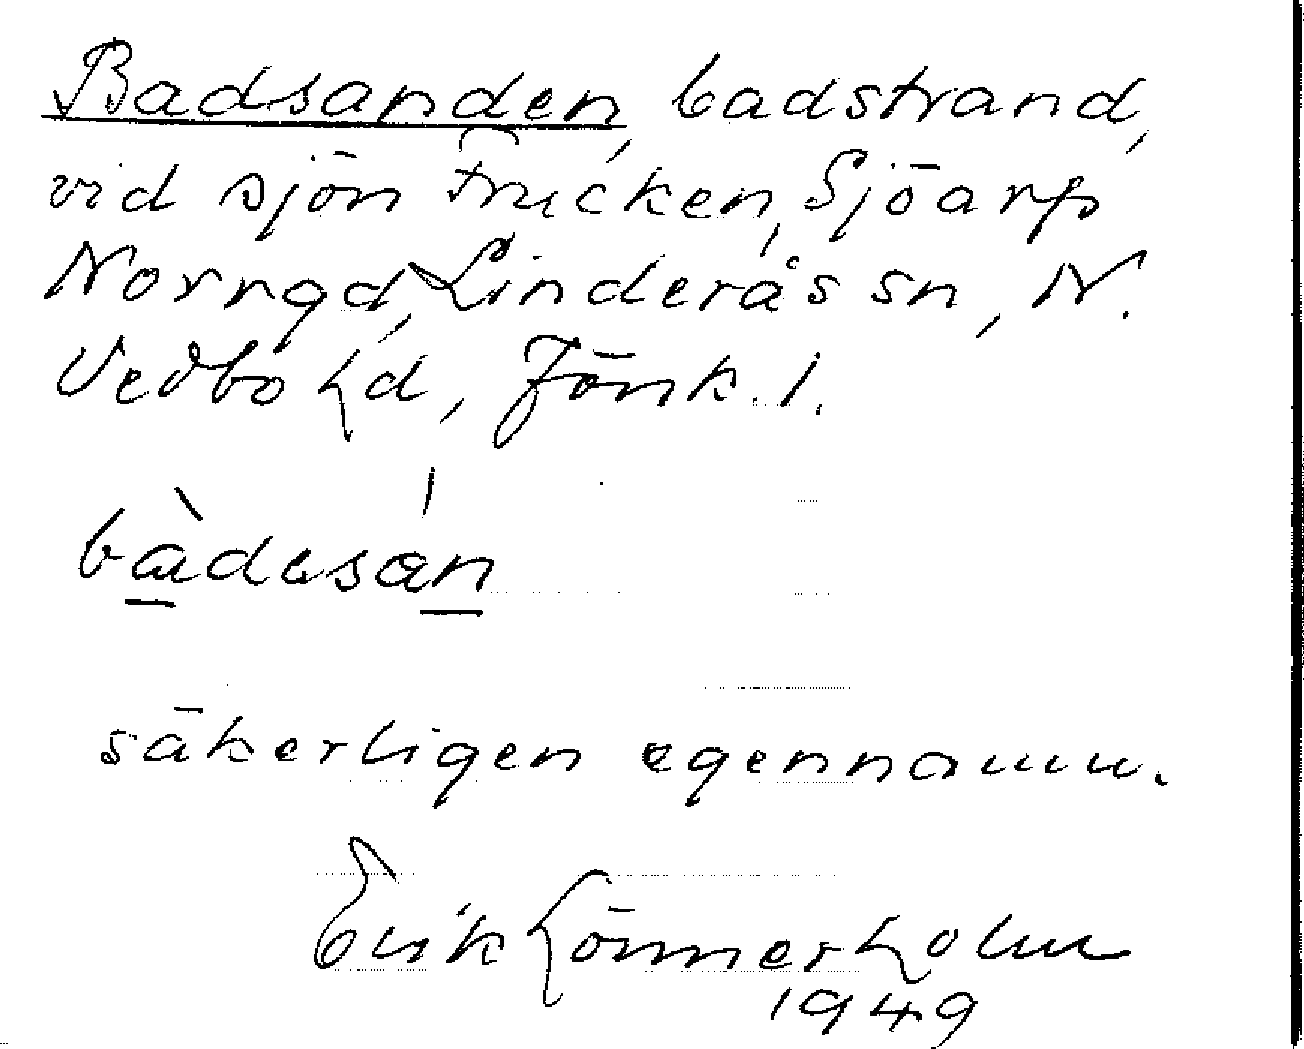 Badsanden, badstrand,
vid sjön Frucken, Sjöarp
Norrgd, Linderås sn, N.
Vedbo hd, Jönk. l.
bàdasán
säkerligen egennamn.
Erik Lönnerholm
1949